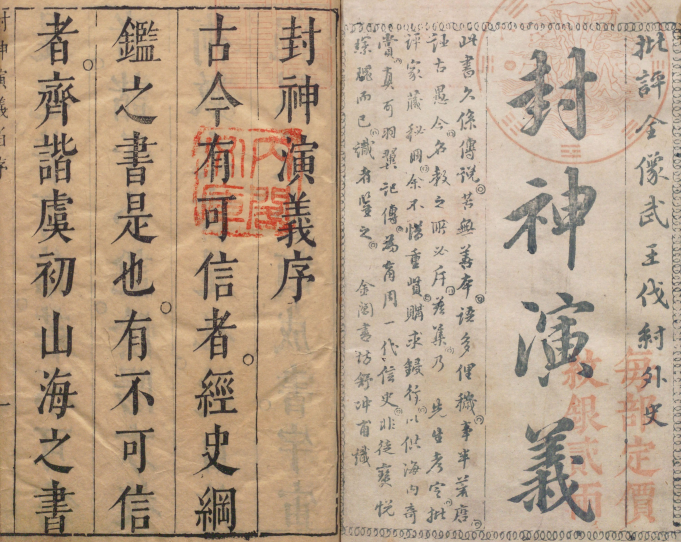 批評全像武王伐紂外史
封神演義
每部定價
紋銀貳兩
此書久係傳說苦無善本語多俚穢事半荒唐
古愚今名教之所必斥茲集乃 先生考定批
評家藏秘冊余不惜重貲購求鋟行以供海內奇
賞真可羽翼記傳為商周一代信史非徒寶悅
琛瑰而已識者鑒之 金閶書坊舒冲甫識
封神演義序
古今有可信者經史綱
鑑之書是也有不可信
者齊諧虞初山海之書
封神演義序
一